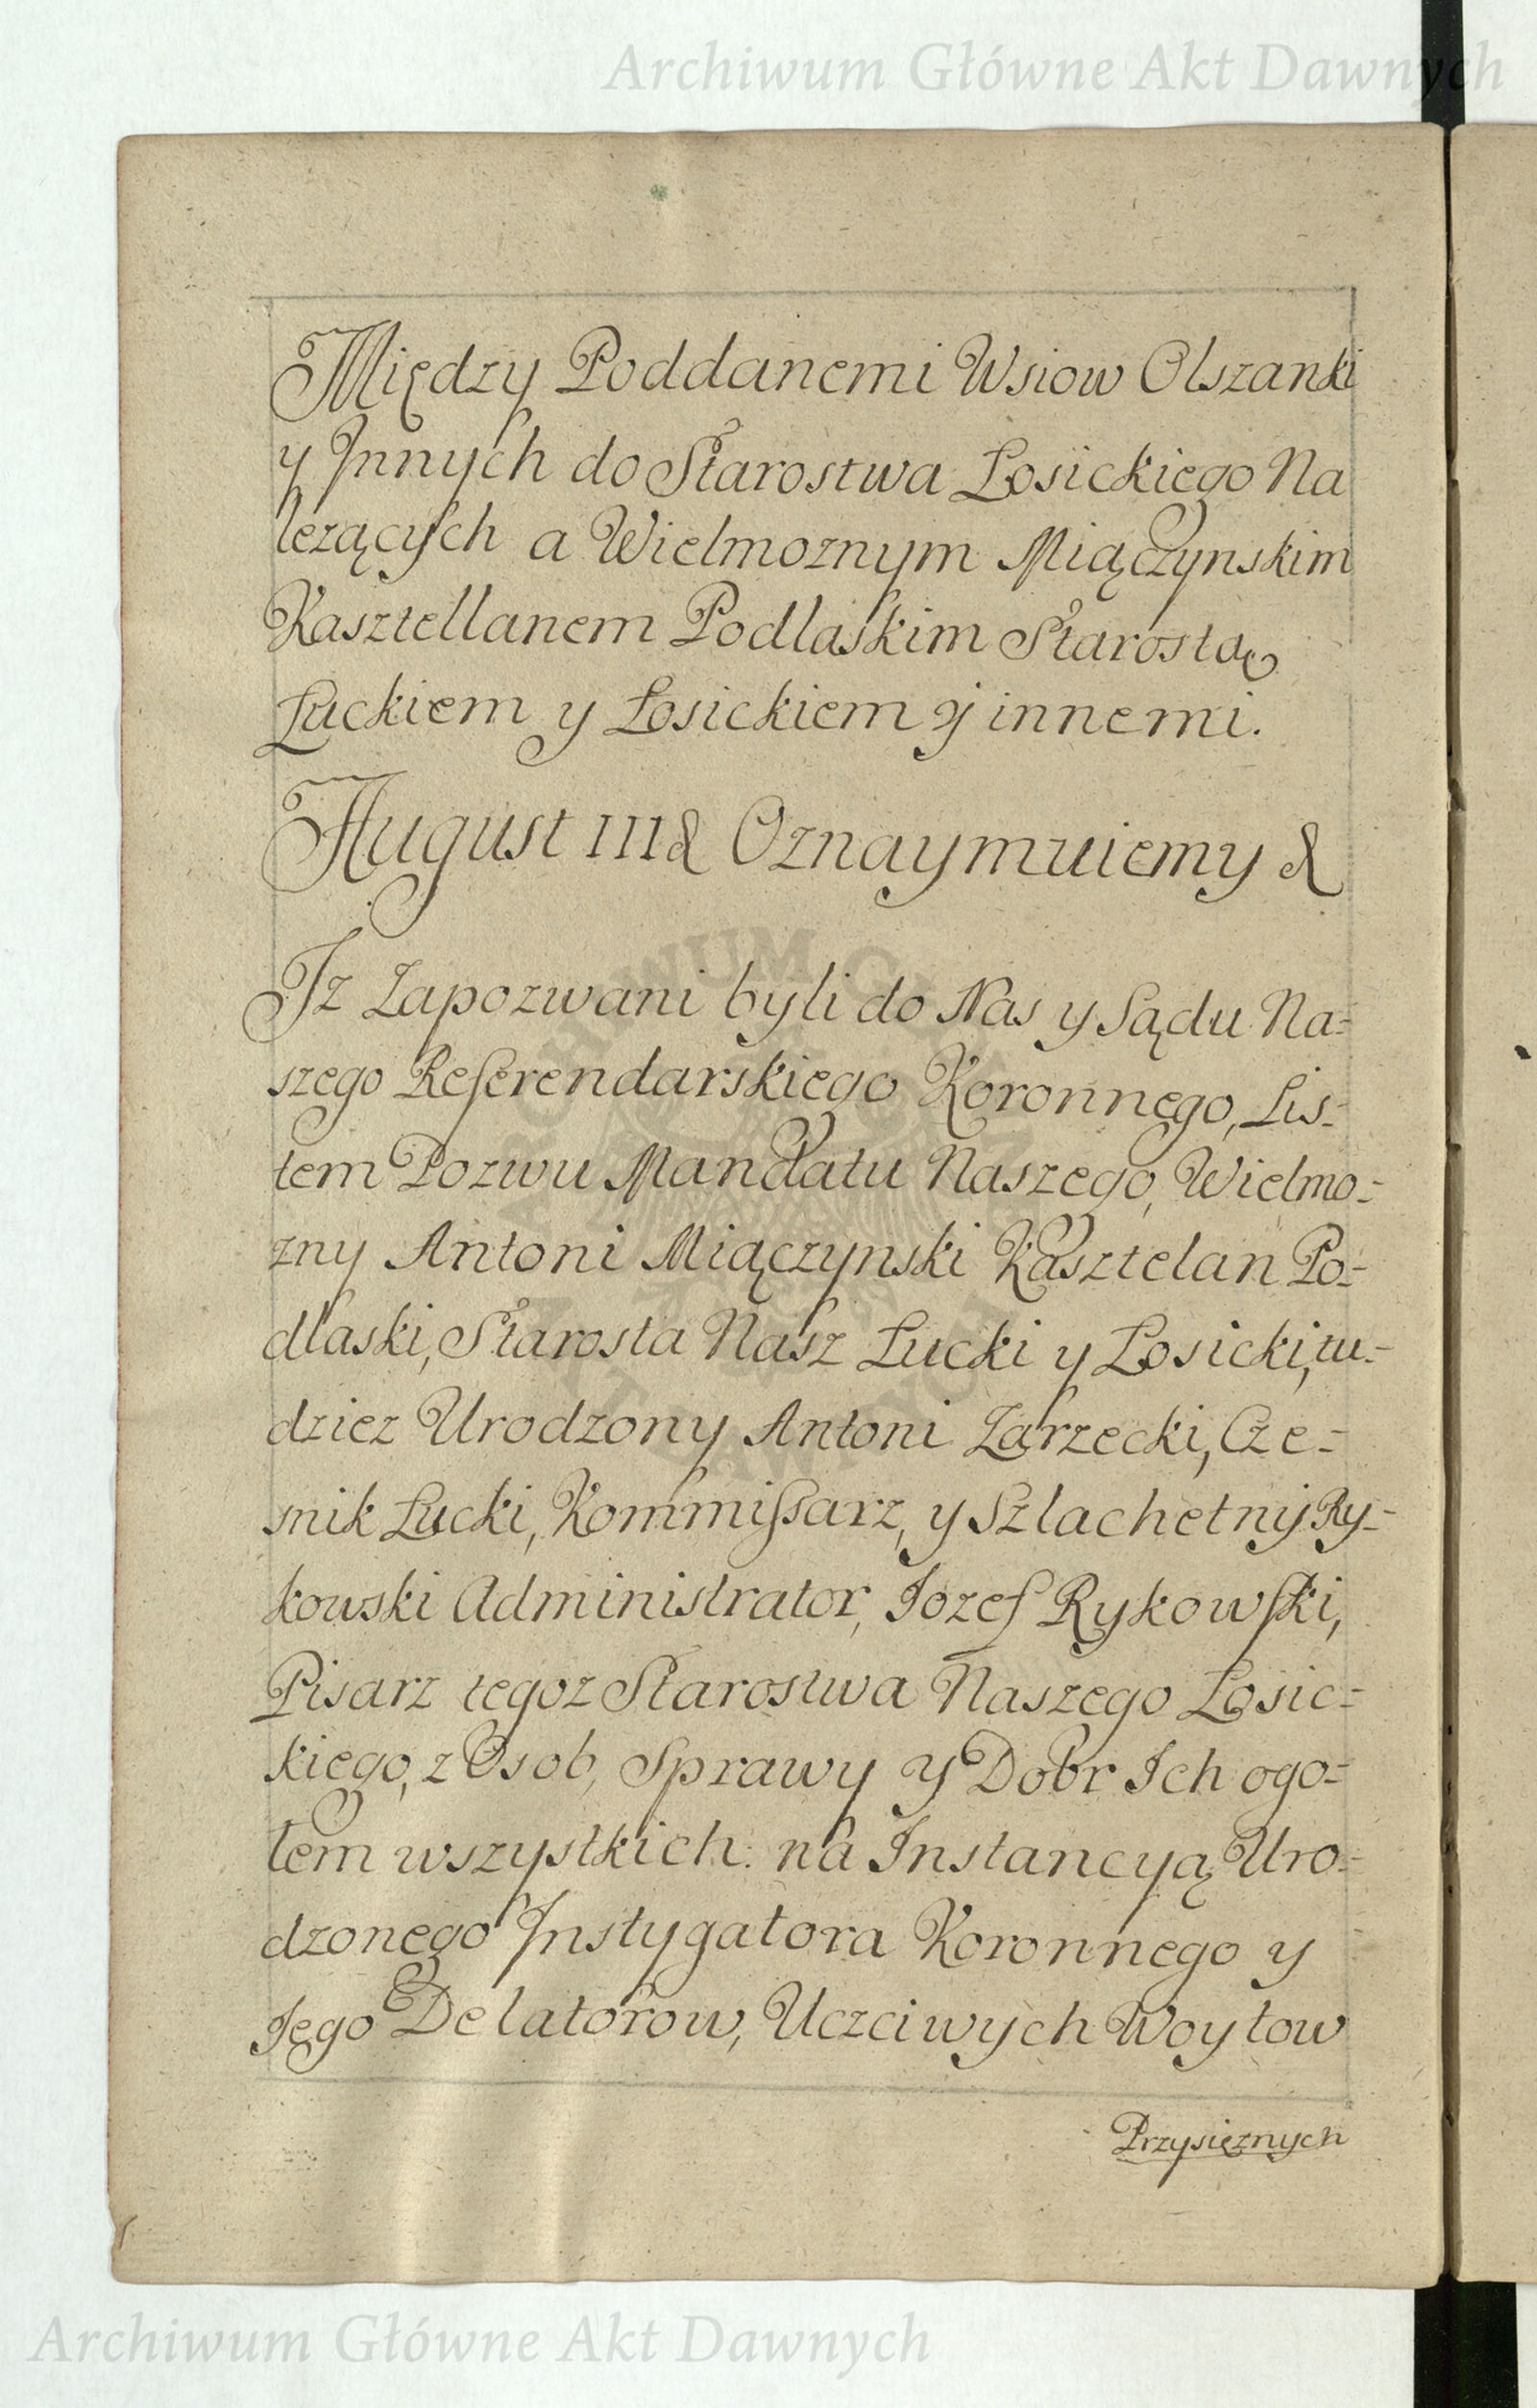 Archiwum Główne Akt Dawnych
Między Poddanemi Wsiow Olszanki
y Jnnych do Starostwa Łosickiego Na
lezących a Wielmoznym Miączynskim
Kasztellanem Podlaskim Starostą
Łuckiem y Łosickiem y innemi.
August III & Oznaymuiemy &
Jz Zapozwani byli do Nas y Sądu Na=
szego Referendarskiego Koronnego, Lis=
tem Pozwu Mandatu Naszego, Wielmo=
zny Antoni Miączynski Kasztelan Po=
dlaski, Starosta Nasz Łucki y Łosicki, tu=
dziez Urodzony Antoni Zarzecki, Cze=
snik Łucki, Kommissarz, y Szlachetny Ry=
kowski Administrator, Jozef Rykowski,
Pisarz tegoz Starostwa Naszego Łosic=
kiego, z Osob, Sprawy y Dobr Ich ogo=
łem wszystkich. na Jnstancyą Uro=
dzonego Jnstygatora Koronnego y
Jego Delatorow, Uczciwych Woytow
Przysięznych
Archiwum Główne Akt Dawnych